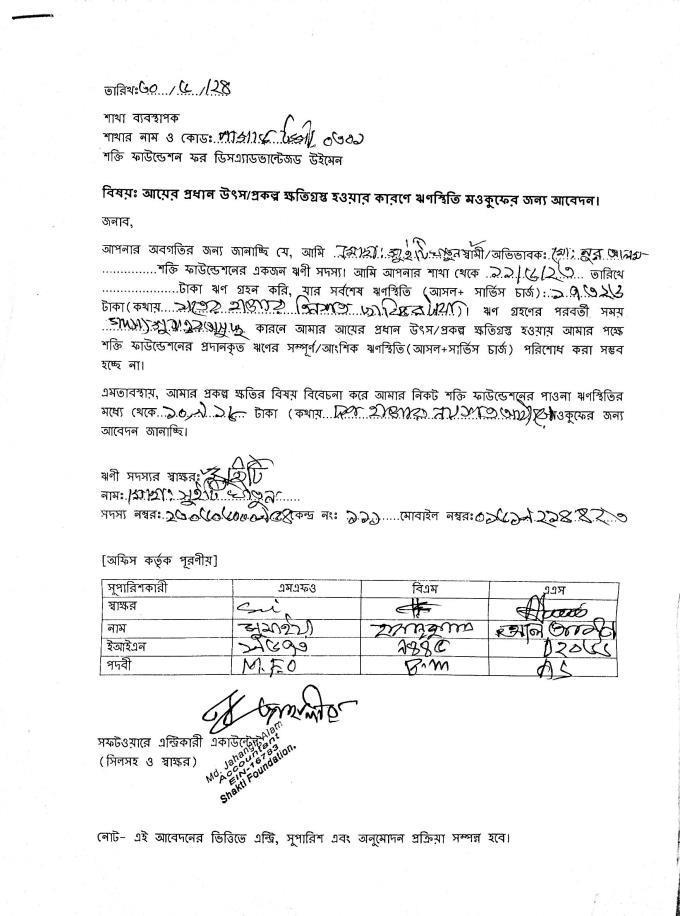 তারিখঃ৩০/৫/২৪
শাখা ব্যবস্থাপক
শাখার নাম ও কোডঃ ০৩০১
শক্তি ফাউন্ডেশন ফর ডিসএ্যাডভান্টেজড উইমেন
বিষয়ঃ আয়ের প্রধান উৎস/প্রকল্প ক্ষতিগ্রস্ত হওয়ার কারণে ঋণস্থিতি মওকুফের জন্য আবেদন।
জনাব,
আপনার অবগতির জন্য জানাচ্ছি যে, আমি মোছাঃ সুইটি খাতুন স্বামী/অভিভাবকঃ মোঃ নুর আলম
................শক্তি ফাউন্ডেশনের একজন ঋণী সদস্য। আমি আপনার শাখা থেকে ২২/৫/২৩ তারিখে
................টাকা ঋণ গ্রহন করি, যার সর্বশেষ ঋণস্থিতি (আসল+ সার্ভিস চার্জ)ঃ ১৭৩২৬
টাকা(কথায় সতের হাজার তিনশত ছাব্বিশ টাকা)। ঋণ গ্রহণের পরবর্তী সময়
কারনে আমার আয়ের প্রধান উৎস/প্রকল্প ক্ষতিগ্রস্ত হওয়ায় আমার পক্ষে
শক্তি ফাউন্ডেশনের প্রদানকৃত ঋণের সম্পূর্ণ/আংশিক ঋণস্থিতি(আসল+সার্ভিস চার্জ) পরিশোধ করা সম্ভব
হচ্ছে না।
এমতাবস্থায়, আমার প্রকল্প ক্ষতির বিষয় বিবেচনা করে আমার নিকট শক্তি ফাউন্ডেশনের পাওনা ঋণস্থিতির
মধ্যে থেকে টাকা (কথায় দশ হাজার মওকুফের জন্য
আবেদন জানাচ্ছি।
ঋণী সদস্যের স্বাক্ষরঃ সুইটি
নামঃ মোছাঃ সুইটি খাতুন
সদস্য নম্বরঃ কেন্দ্র নং: ১১১ মোবাইল নম্বরঃ
[অফিস কর্তৃক পূরণীয়]
সুপারিশকারী এসএফও বিএম এএস
স্বাক্ষর
নাম সুমাইয়া
ইআইএন
পদবী M.F.O B.m AS
জাহাঙ্গীর
সফটওয়ারে এন্ট্রিকারী একাউন্টেন্ট
(সিলসহ ও স্বাক্ষর)
Md. Jahangir Alam
Accountant
EIN-16783
Shakti Foundation.
নোট- এই আবেদনের ভিত্তিতে এন্ট্রি, সুপারিশ এবং অনুমোদন প্রক্রিয়া সম্পন্ন হবে।